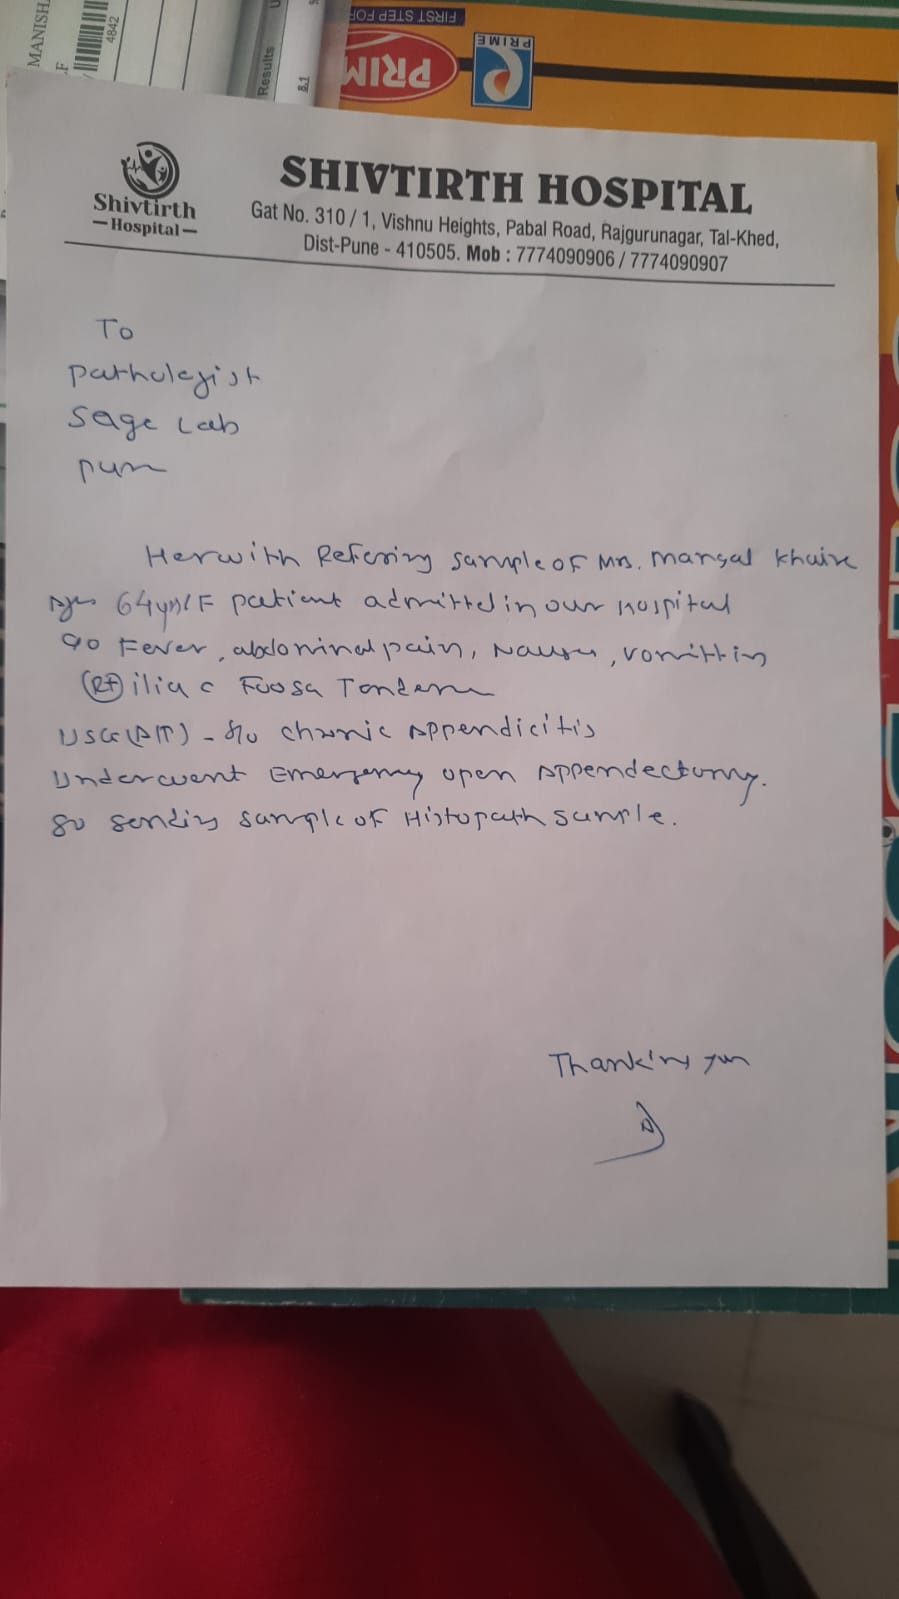 MANISHA
4842
Results
8.1
FIRST STEP FOR
PRIME
PRIM
Shivtirth
Hospital
SHIVTIRTH HOSPITAL
Gat No. 310 / 1, Vishnu Heights, Pabal Road, Rajgurunagar, Tal-Khed,
Dist-Pune - 410505. Mob : 7774090906 / 7774090907
To
Pathologist
Sage Lab
Pune
Herwith Refering sample of Mrs. Mangal Khaire
Age 64yrs/F patient admitted in our Hospital
c/o Fever, abdominal pain, Nausea, vomitting
(Rt) iliac Foosa Tenderness
USG(A/P) - S/o chronic Appendicitis
Underwent Emergency open Appendectomy.
so sending sample of Histopath sample.
Thanking you